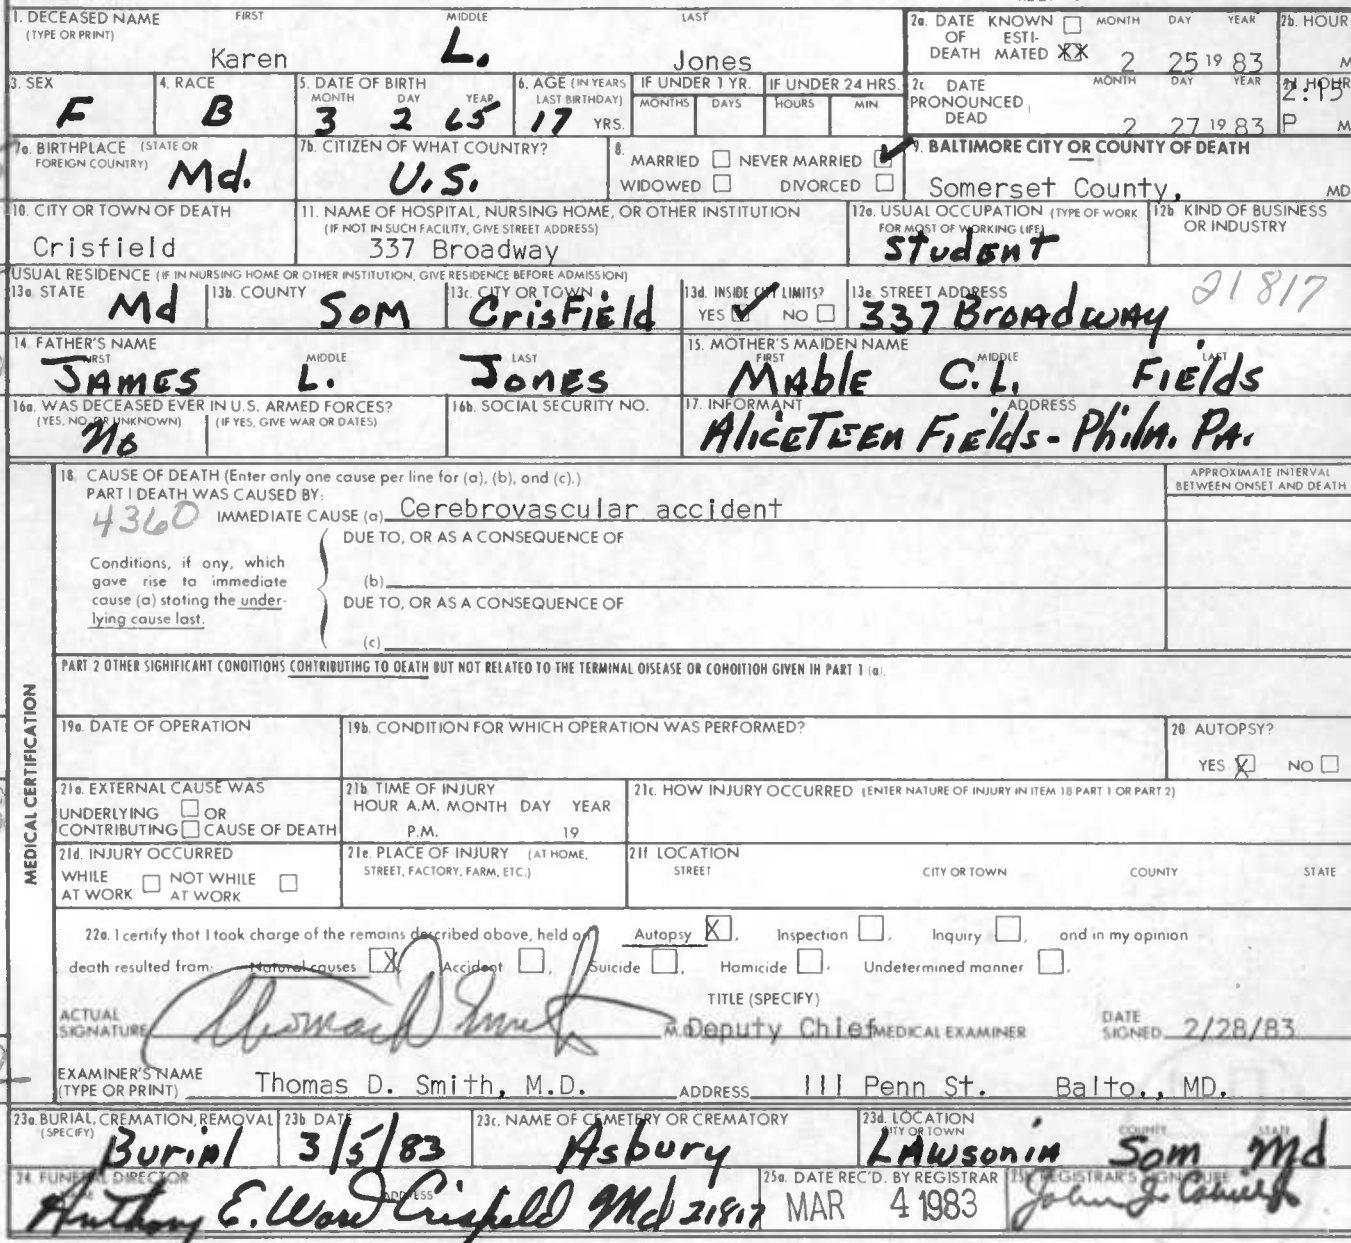 1. DECEASED NAME FIRST MIDDLE LAST
(TYPE OR PRINT)
Karen L. Jones
2a. DATE KNOWN ☐ MONTH DAY YEAR
OF ESTI-
DEATH MATED XX 2 25 19 83
2b. HOUR
M
3. SEX
F
4. RACE
B
5. DATE OF BIRTH
MONTH DAY YEAR
3 2 65
6. AGE (IN YEARS
LAST BIRTHDAY)
17 YRS.
IF UNDER 1 YR.
MONTHS DAYS
IF UNDER 24 HRS.
HOURS MIN
2c DATE MONTH DAY YEAR
PRONOUNCED
DEAD 2 27 19 83
HOUR
2:15
P M
7a. BIRTHPLACE (STATE OR
FOREIGN COUNTRY)
Md.
7b. CITIZEN OF WHAT COUNTRY?
U.S.
8.
MARRIED ☐ NEVER MARRIED ☑
WIDOWED ☐ DIVORCED ☐
9. BALTIMORE CITY OR COUNTY OF DEATH
Somerset County, MD
10. CITY OR TOWN OF DEATH
Crisfield
11. NAME OF HOSPITAL, NURSING HOME, OR OTHER INSTITUTION
(IF NOT IN SUCH FACILITY, GIVE STREET ADDRESS)
337 Broadway
12a. USUAL OCCUPATION (TYPE OF WORK
FOR MOST OF WORKING LIFE)
Student
12b KIND OF BUSINESS
OR INDUSTRY
USUAL RESIDENCE (IF IN NURSING HOME OR OTHER INSTITUTION, GIVE RESIDENCE BEFORE ADMISSION)
13a STATE
Md
13b. COUNTY
Som
13c. CITY OR TOWN
CrisField
13d. INSIDE CITY LIMITS?
YES ☑ NO ☐
13e. STREET ADDRESS
21817
337 BroadwAy
14. FATHER'S NAME
FIRST MIDDLE LAST
JAMES L. JONES
15. MOTHER'S MAIDEN NAME
FIRST MIDDLE LAST
MAble C.L. FiElds
16a. WAS DECEASED EVER IN U.S. ARMED FORCES?
(YES, NO, OR UNKNOWN) (IF YES, GIVE WAR OR DATES)
No
16b. SOCIAL SECURITY NO.
17. INFORMANT ADDRESS
AliceTEEn FiElds - PhilA. PA.
MEDICAL CERTIFICATION
18. CAUSE OF DEATH (Enter only one cause per line for (a), (b), and (c).)
APPROXIMATE INTERVAL
BETWEEN ONSET AND DEATH
PART I DEATH WAS CAUSED BY:
4360
IMMEDIATE CAUSE (a) Cerebrovascular accident
DUE TO, OR AS A CONSEQUENCE OF
Conditions, if any, which
gave rise to immediate
cause (a) stating the under-
lying cause last.
(b)
DUE TO, OR AS A CONSEQUENCE OF
(c)
PART 2 OTHER SIGNIFICANT CONDITIONS CONTRIBUTING TO DEATH BUT NOT RELATED TO THE TERMINAL DISEASE OR CONDITION GIVEN IN PART 1 (a).
19a. DATE OF OPERATION
19b. CONDITION FOR WHICH OPERATION WAS PERFORMED?
20. AUTOPSY?
YES ☒ NO ☐
21a. EXTERNAL CAUSE WAS
UNDERLYING ☐ OR
CONTRIBUTING ☐ CAUSE OF DEATH
21b TIME OF INJURY
HOUR A.M. MONTH DAY YEAR
P.M. 19
21c. HOW INJURY OCCURRED (ENTER NATURE OF INJURY IN ITEM 18 PART 1 OR PART 2)
21d. INJURY OCCURRED
WHILE ☐ NOT WHILE ☐
AT WORK AT WORK
21e. PLACE OF INJURY (AT HOME,
STREET, FACTORY, FARM, ETC.)
21f LOCATION
STREET CITY OR TOWN COUNTY STATE
22a. I certify that I took charge of the remains described above, held an Autopsy ☒, Inspection ☐, Inquiry ☐, and in my opinion
death resulted from: Natural causes ☒, Accident ☐, Suicide ☐, Homicide ☐, Undetermined manner ☐.
ACTUAL
SIGNATURE Thomas D. Smith M.D.
TITLE (SPECIFY)
Deputy Chief MEDICAL EXAMINER
DATE
SIGNED 2/28/83
EXAMINER'S NAME
(TYPE OR PRINT) Thomas D. Smith, M.D. ADDRESS 111 Penn St. Balto., MD.
23a. BURIAL, CREMATION, REMOVAL
(SPECIFY)
Burial
23b. DATE
3/5/83
23c. NAME OF CEMETERY OR CREMATORY
Asbury
23d. LOCATION
CITY OR TOWN COUNTY STATE
LAwsoniA Som Md
24. FUNERAL DIRECTOR
ADDRESS
Anthony E. Ward Crisfield Md 21817
25a. DATE REC'D. BY REGISTRAR
MAR 4 1983
REGISTRAR'S SIGNATURE